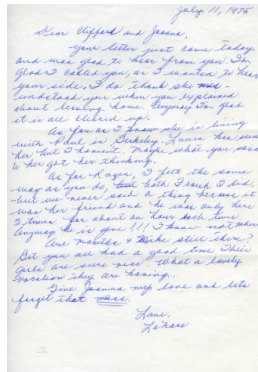 July 11, 1975
Dear Clifford and Joanna,
your letter just came today
and was good to hear from you. I'm
glad I called you, as I wanted to hear
your side, I do think she mis-
understood you when you explained
about leaving home. Anyway I'm glad
it is all cleared up.
As far as I know she is living
with in Berkeley. Laura has seen
her but I haven't. Maybe what you said
to her got her thinking.
As for Roger, I felt the same
way as you do, both Frank & I did,
but we never said a thing because it
was her friend and he was only here
2 times for about an hour each time
Anyway he is gone!!! I know not where
Are & Mike still there?
Bet you all had a good time. Their
girls are sure nice. What a lovely
vacation they are having.
Give Joanna my love and lets
forget that mess.
Love,